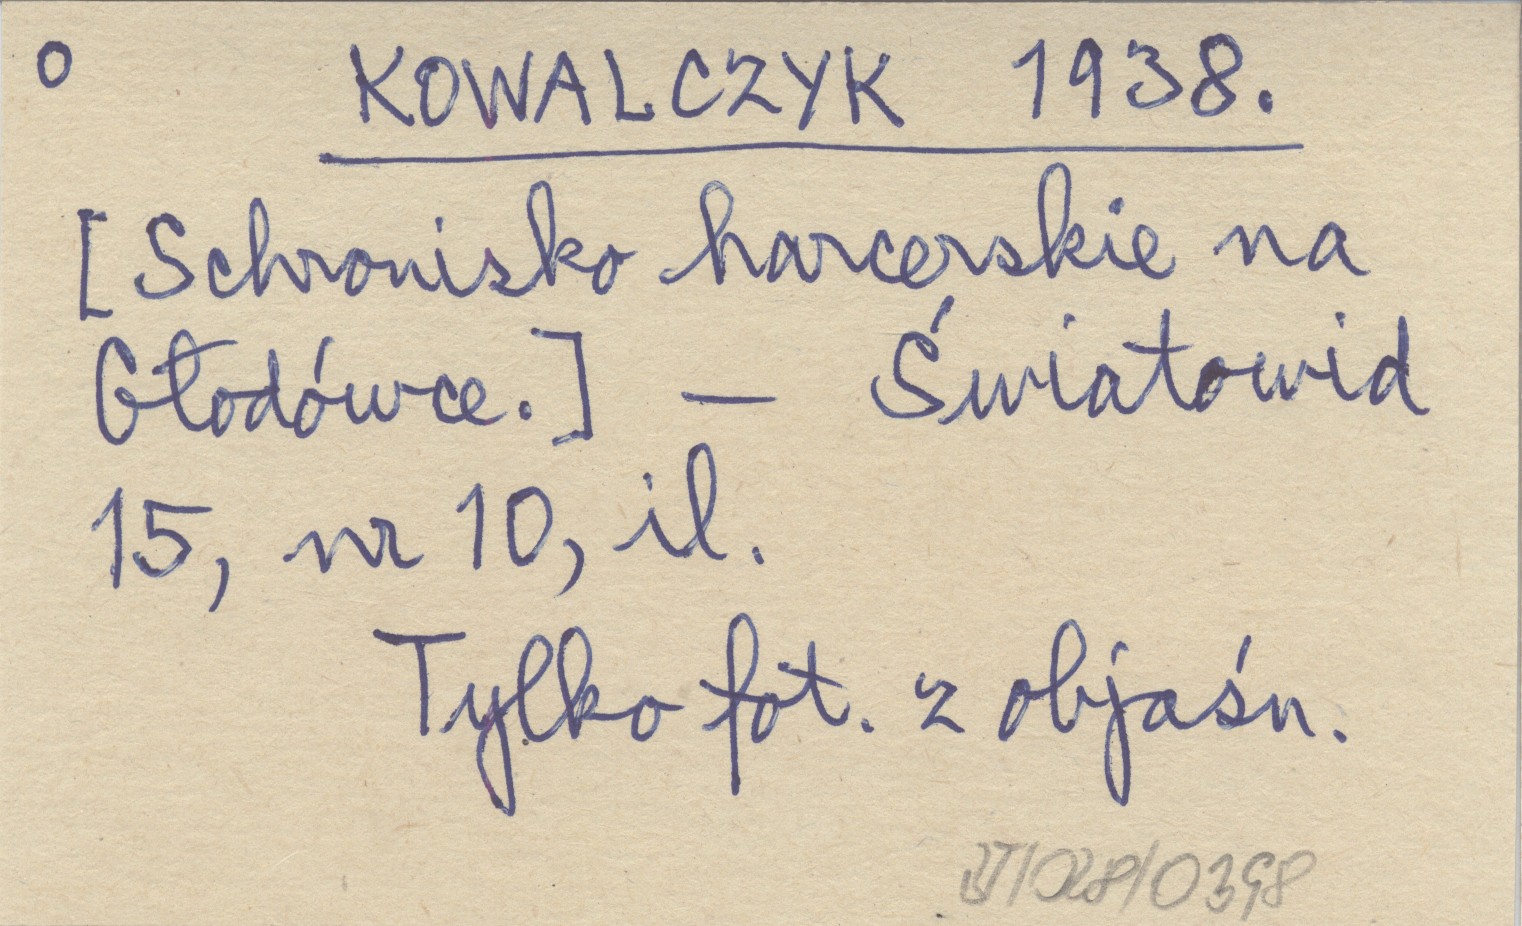 o KOWALCZYK 1938.
[Schronisko harcerskie na
Głodówce.] — Światowid
15, nr 10, il.
Tylko fot. z objaśn.
BT/028/0398